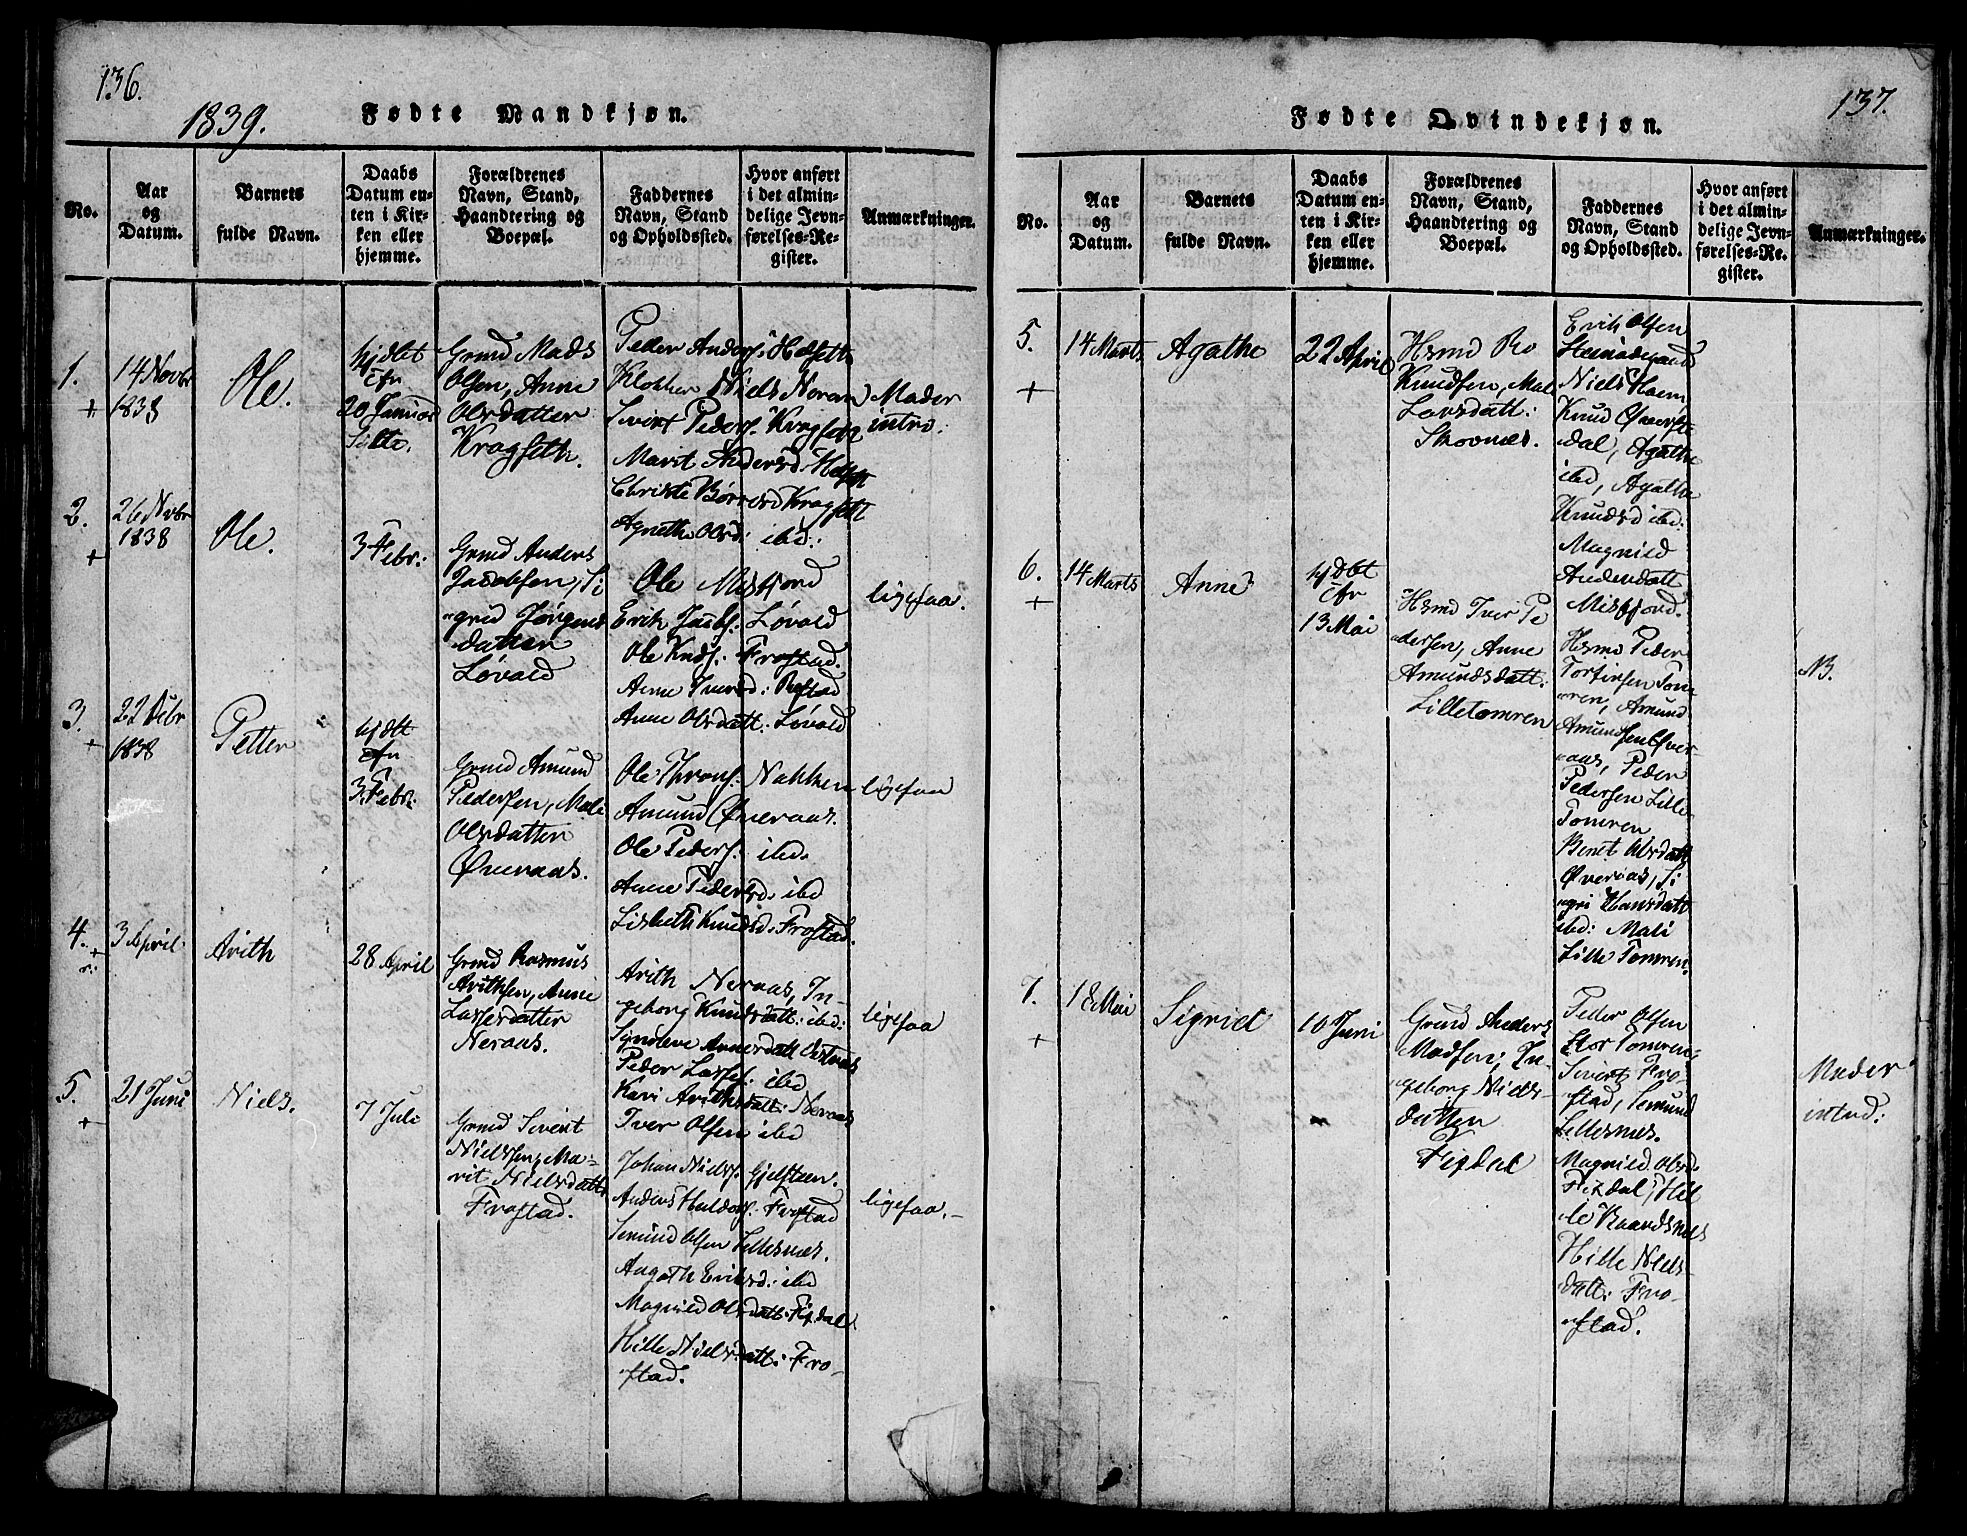 136.
1839.
Fødte Mandkjøn.
No.
Aar
og
Datum.
Barnets
fulde Navn.
Daabs
Datum en-
ten i Kir-
ken eller
hjemme.
Forældrenes
Navn, Stand,
Haandtering og
Boepæl.
Faddernes
Navn, Stand
og Opholdssted.
Hvor anført
i det almin-
delige Jevn-
førelses-Re-
gister.
Anmærkninger.
1.
+
14 Novbr
1838
Ole.
hjdbt
cfr
20 Januar
Grmd Mads
Olsen, Anne
Olsdatter
Kragseth.
Peder Anders.
Klokker Niels
Sivert Peders. Kragseth
Marit Andersd.
Christe Kragsett
Agnethe Olsd: ibd:
Moder
intro.
2.
+
26 Novbr
1838
Ole.
3 Febr:
Grmd Anders
Jacobsen, Si
"grid Jørgens
datter
Løvold
Ole Misfjord
Erik Jacobs. Løvold
Ole Knds: Frostad.
Anne Iversd: Røstad
Anne Olsdatt: Løvold
ligesaa.
3.
+
22 Debr
1838
Petter
hjdtt
cfr
3 Febr.
Grmd Amund
Pedersen, Mali
Olsdatter
Øveraas.
Ole Throns. Nakken
Amund Øveraas.
Ole Peders. ibd.
Anne Pedersd. ibd
Lisbeth Knudsd. Frostad.
ligesaa
4.
+
r:
3 April
Arith
28 April
Grmd Rasmus
Arithsen, Anne
Lassesdatter
Neraas.
Arith Neraas, In-
geborg Knudsdatt: ibd:
Synneve Annersdatt
Peder Lasses: ibd
Kari Arithsdatt: Neraas
Iver Olsen ibd
ligesaa
5.
+
21 Juni
Niels.
7 Juli
Grmd Sivert
Nielssen, Ma-
rit Nielsdatt
Frostad.
Johan Niels. Gjelsteen.
Anders Haldors. Frostad
Semund Olsen Lillesnæs.
Angath Eriksd. ibd
Magnild Olsdatt: Fixdal
Hille Nielsdatt: Fro-
"stad.
ligesaa.-
137.
Fødte Qvindekjøn.
No.
Aar
og
Datum.
Barnets
fulde Navn.
Daabs
Datum en-
ten i Kir-
ken eller
hjemme.
Forældrenes
Navn, Stand,
Haandtering og
Boepæl.
Faddernes
Navn, Stand
og Opholdssted.
Hvor anført
i det almin-
delige Jevn-
førelses-Re-
gister.
Anmærkninger.
5.
+
14 Marts
Agathe
22 April
Hsmd Ro
Knudsen, Mal
Larsdatt:
Skovnæs.
Erik Olsen
Niels
Knud Øverste
dal, Agathe
ibd, Agathe
Knudsd ibd.
Magnild
Andersdatt
Misfjord.
6.
+
14 Marts
Anne
hjdbt
cfr
13 Mai
Hsmd Iver Pe
"dersen, Anne
Amundsdatt:
Lilletomren
Hsmd Peder
Tortinsen Tom
ren, Amund
Amundsen Øver
"aas, Peder
Pedersen Lille
Tomren
Beret Olsdatt
Øveraas, Si
"gri Hansdatt
ibd: Mali
Lille Tomren.
NB.
7.
+
18 Mai
Sigrid
10 Juni
Grmd Anders
Madsen, In
"geborg Niels
datter
Fixdal
Peder Olsen
Stor Tomren,
Sivert Fro-
stad, Semund
Lillesnæs.
Magnild Olsd.
Fixdal, Hil
le Baardsnæs
Hille Niels-
datt: Fro-
"stad.
Moder
intrd: